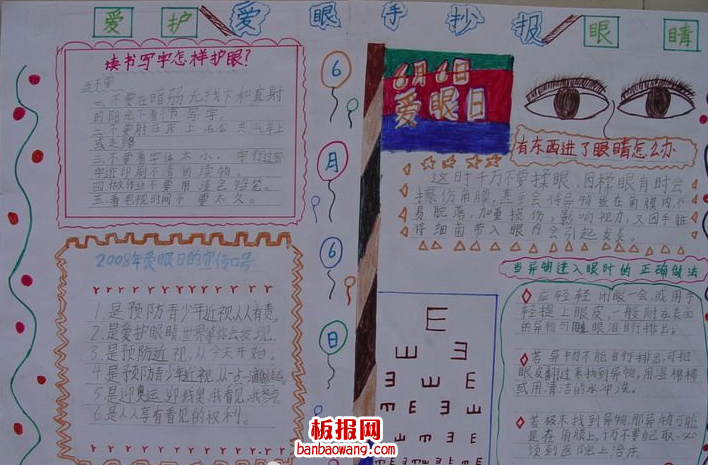 爱护爱眼手抄报眼睛
读书写字怎样护眼?
五不要
一.不要在暗弱光线下和直射
的阳光下看书写字。
二.不要躺在床上在公共汽车上
或走路
三.不要看字体太小、字
迹印刷不清的读物。
四.做作业不要用
五.看电视时间不要太久。
6
月
6
日
2008年爱眼日的宣传口号
1.是预防青少年近视人人有责。
2.是爱护眼睛世界等你去发现。
3.是预防近视,从今天开始。
4.是预防青少年近视,从一点一滴做起。
5.是迎奥运
6.是人人享有看见的权利。
6月6日
爱眼日
有东西进了眼睛怎么办
这时千万不要揉眼,因揉眼有时会
擦伤角膜,甚至会将异物嵌在角膜内不
易脱落,加重损伤,影响视力,又因手脏
将细菌带入眼内会引起发炎。
当异物进入眼时的正确做法
应轻轻闭眼一会,或用手
轻提上眼皮,一般附在表面
的异物可随眼泪自行排出。
若异物不能自行排出,可把
眼皮翻过来找到异物,用湿棉棒
或用清洁的水冲洗。
若极未找到异物,那异物可能
是在角膜上,千万不要自己取,必
须到医院上治疗。
E
板报网
banbaowang.com